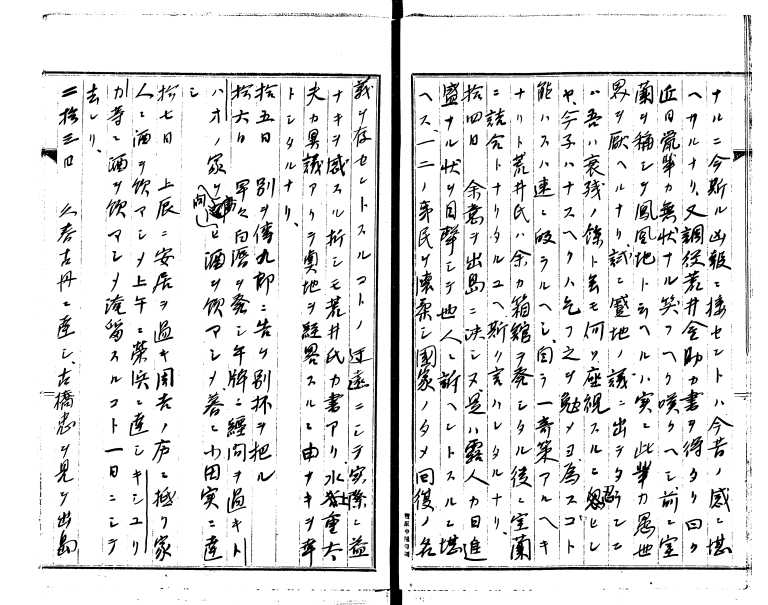 ナルニ今斯ル凶報ニ接セントハ今昔ノ感ニ堪
ヘサルナリ、又調役荒井金助カ書ヲ得タリ曰ク
近日鴬輩カ無状ナル笑フヘク嘆クヘシ前ニ室
蘭ヲ称シテ鳳凰地ト云ヘルハ実ニ此輩カ愚也
男ヲ厭ヘルナリ、試ニ盛地ノ議ニ出テタルニ
ハ吾ハ衰残ノ餘ト雖モ何ゾ座視スルニ忍ヒン
ヤ、今子ハナスヘクハ乞フ之ヲ勉メヨ為スコト
能ハスハ速ニ皈ラルヘシ、自ラ一奇策アルヘキ
ナリト荒井氏ハ余カ箱館ヲ発シタル後ニ室蘭
ニ詰合トナリタルユヘ斯ク言ハレタルナリ、
拾四日 余意ヲ出島ニ決シヌ是ハ露人カ日進
盛ナル状ヲ目撃シテ他人ニ訴ヘントスルニ堪
ヘス、一二ノ弟民ヲ懐柔シ国家ノタメ回復ノ名
義ヲ存セントスルコトノ迂遠ニシテ実際ニ益
ナキヲ感スル折シモ荒井氏カ書アリ水社重太
夫カ異議アリテ奥地ヲ経畧スルニ由ナキヲ幸
トシタルナリ、
拾五日 別ヲ傳九郎ニ告ケ別杯ヲ把ル
拾六日 早々白濱ヲ発シ午牌ニ経向ヲ過キト
ハオノ家ヲ訪ヒ酒ヲ飲マシメ暮ニ小田実ニ達
シ
拾七日 上辰ニ安居ヲ過キ周吉ノ府ニ抵リ家
人ニ酒ヲ飲マシメ上午ニ栄浜ニ達シキシユリ
カ等ニ酒ヲ飲マシメ淹留スルコト一日ニシテ
去レリ、
二拾三日 久春古丹ニ達シ、古橋忠ヲ見ケ出島